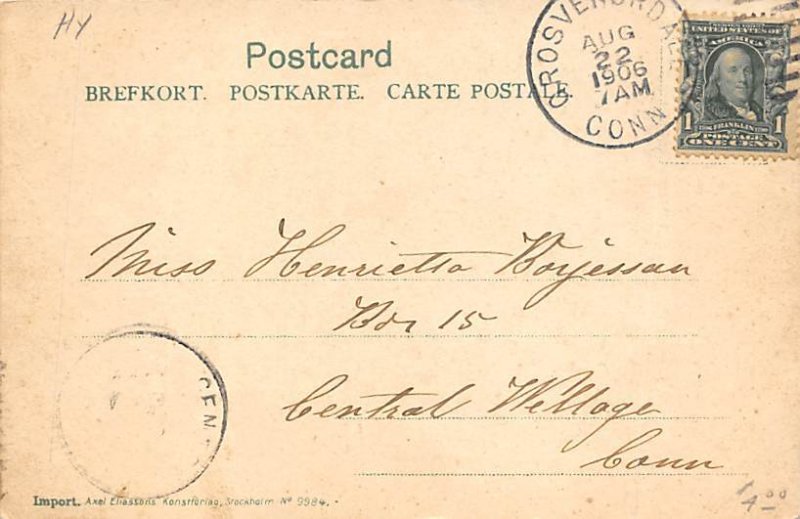 HY
Postcard
BREFKORT. POSTKARTE. CARTE POSTALE.
GROSVENORDALE
AUG
22
1906
7AM
CONN
UNITED STATES OF
AMERICA
1 FRANKLIN 1
POSTAGE
ONE CENT
Miss Henrietta Borjesson
Box 15
Central Village
Conn
CEN
Import. Axel Eliassons Konstförlag, Stockholm No 9984.